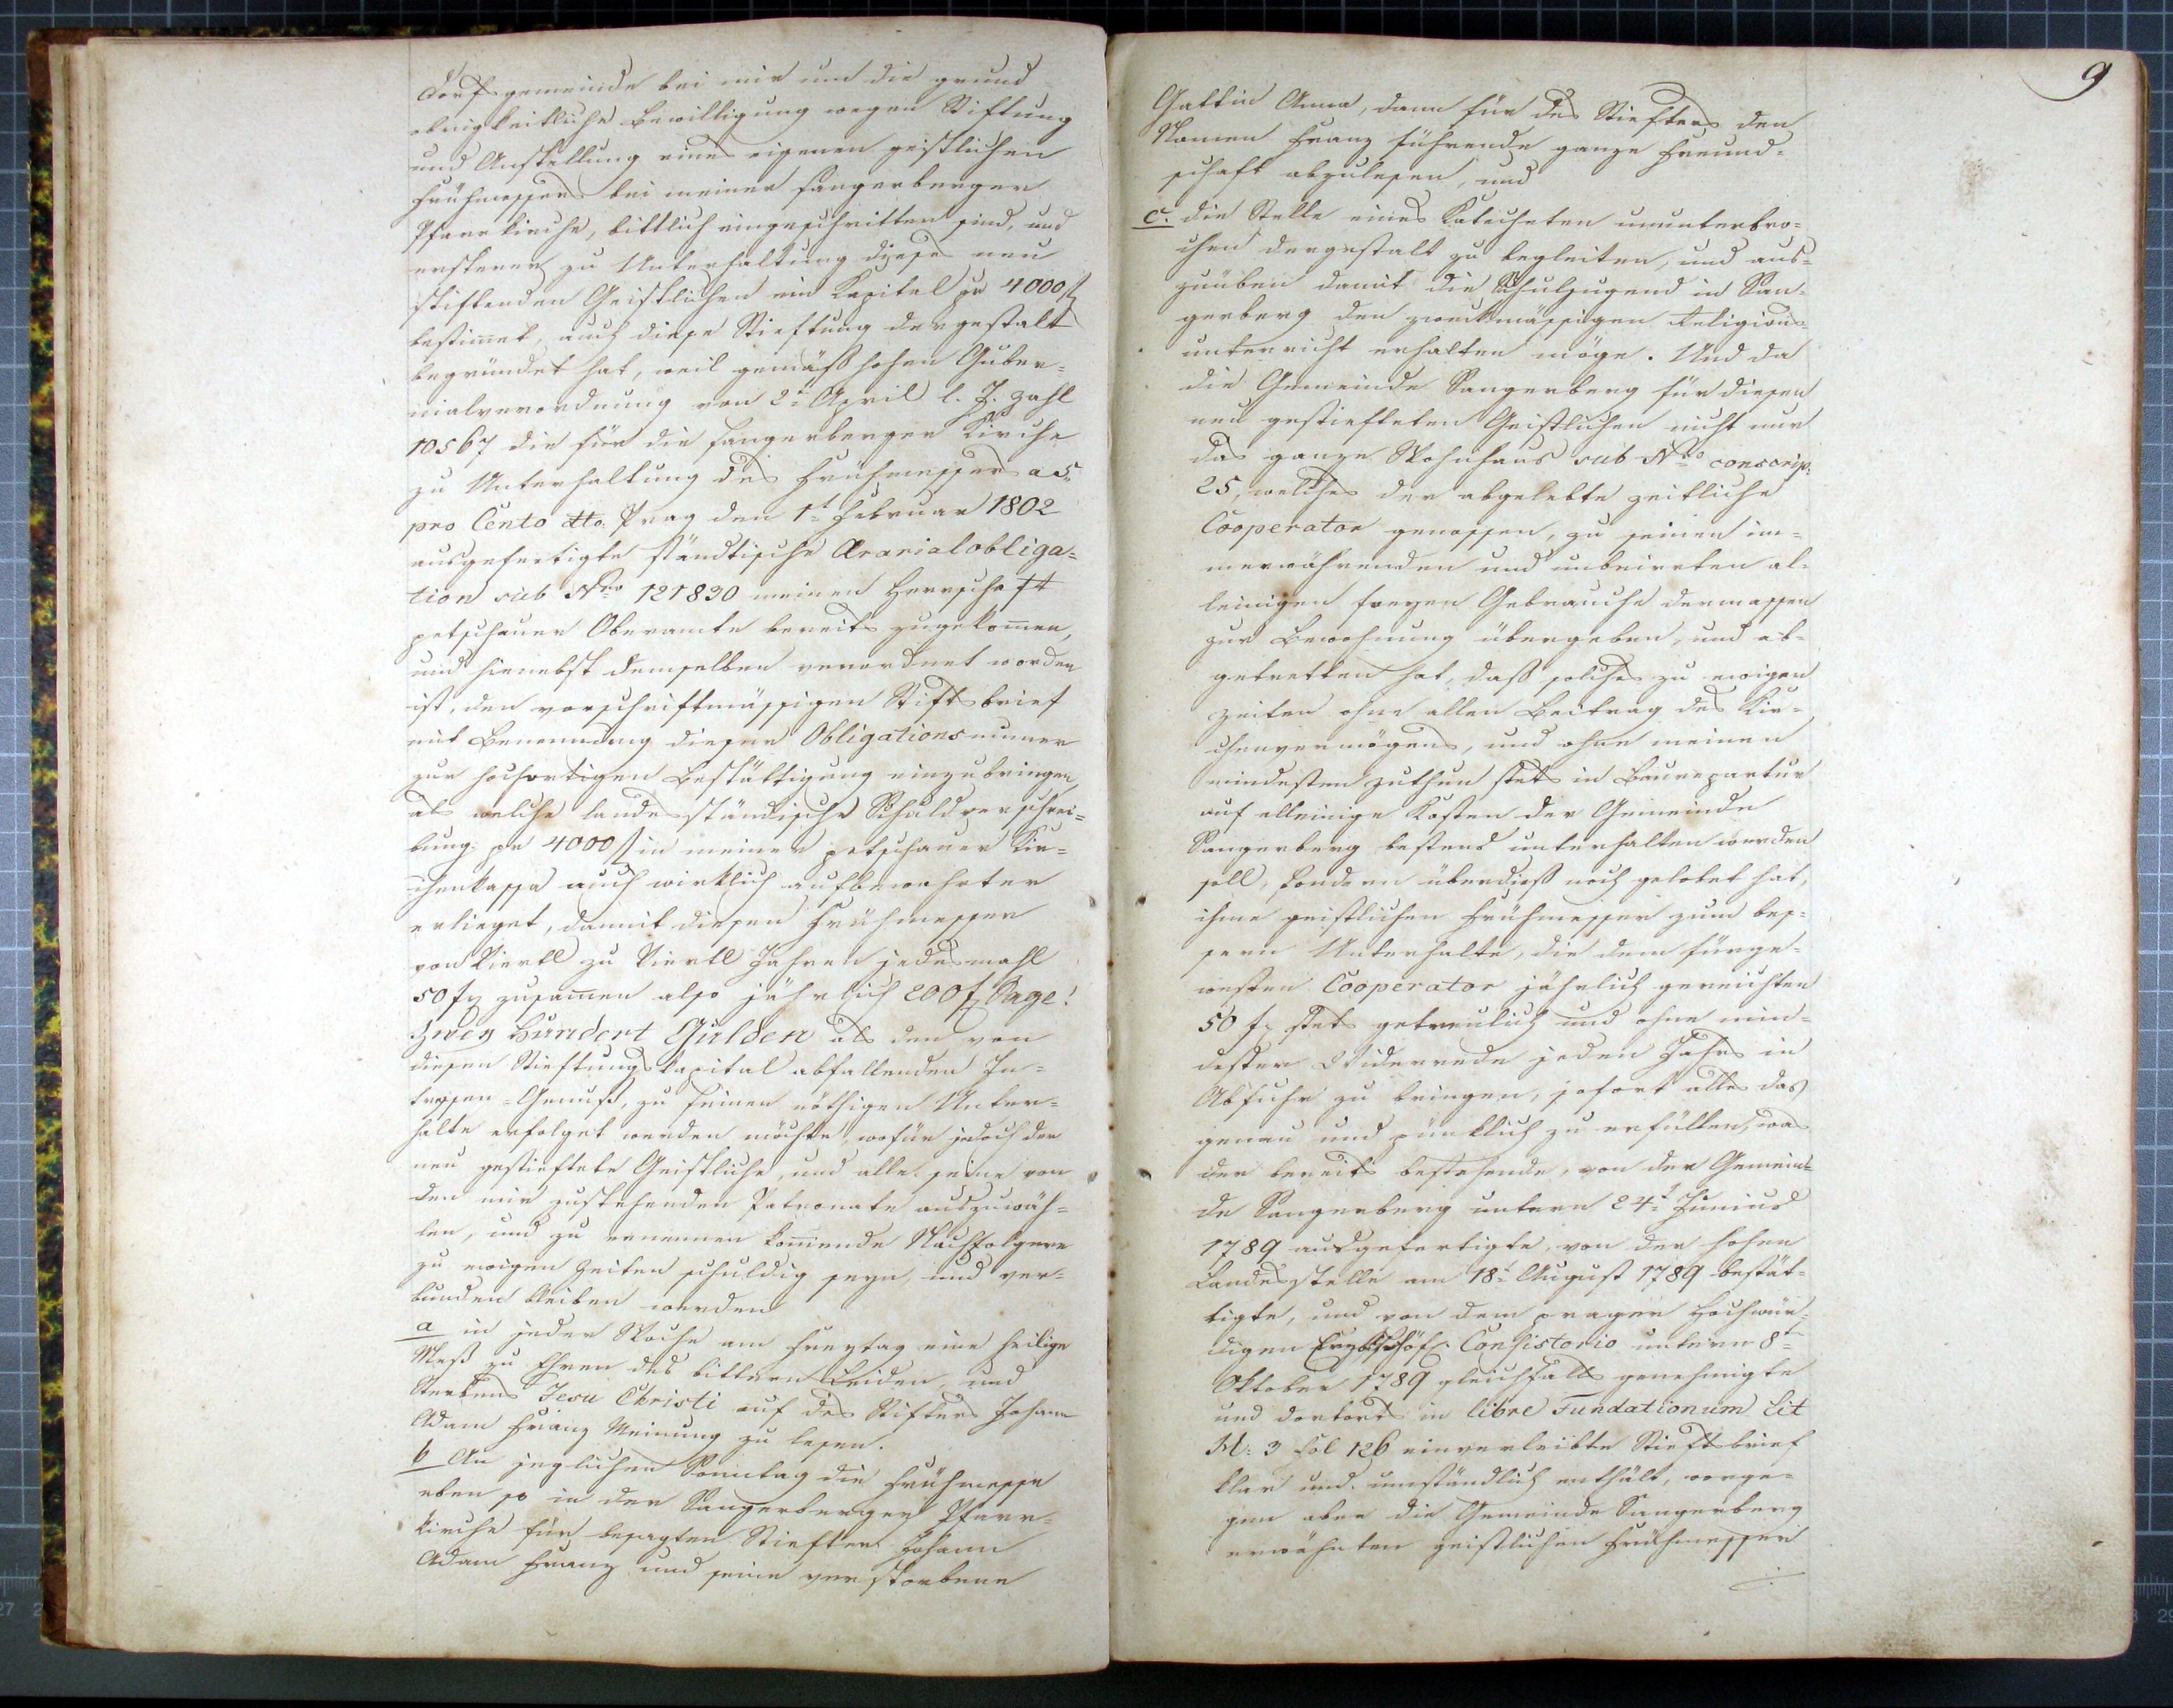 Dorfsgemeinde bei mir um die grund
obrigkeitliche Bewilligung wegen Stiftung
und Anstellung eines eigenen geistlichen
Frühmessers bei meiner sangerberger
Pfarrkirche, bittlich eingeschritten sind, und
ersterer zu Unterhaltung dieses neu
stiftenden Geistlichen ein Kapital pr 4000 f
bestimmet, auch diese Stieftung dergestalt
begründet hat, weil gemäß hohen Guber=
nialverordnung von 2t April l. J. Zahl
10567 die für die sangerberger Kirche
zu Unterhaltung des Frühmessers a 5
pro Cento dto. Prag den 1t Februar 1802
ausgefertigte ständtische Ararialobliga=
tion sub Nro 121830 meinen Herrschaft
petschauer Oberamte bereits zugekommen,
und hienebst demselben verordnet worden
ist, den vorschriftmässigen Stiftsbrief
mit Benennung dieser Obligationsnumer
zur hochortigen Bestättigung einzubringen,
als welche landesständische Schuldverschrei=
bung pr 4000 f in meiner petschauer Kir=
chenkassa auch wirklich aufbewahrter
erlieget, damit diesen Frühmesser
von Viertl zu Viertl Jahren jedesmahl
50 f zusammen also jährlich 200 f Sage!
Zwey Hundert Gulden als den von
diesen Stieftungskapital abfallenden In=
tressen=Genuß, zu seinen nöthigen Unter=
halte erfolget werden möchte, wofür jedoch der
neu gestieftete Geistliche, und alle seine von
den mir zustehenden Patronate auszuwäh=
len, und zu ernennen kommende Nachfolgere
zu ewigen Zeiten schuldig seyn, und ver=
bunden bleiben werden
a in jeder Woche am Freytag eine heilige
Meß zu Ehren des bittern Leiden, und
Sterbens Jesu Christi auf des Stifters Johann
Adam Franz Meinung zu lesen.
b An jeglichen Sonntag die Frühmesse
eben so in der Sangerberger Pfarr=
kirche für besagten Stiefter Johann
Adam Franz und seine verstorbene
9
Gattin Anna, dann für des Stiefters den
Namen Franz führende ganze Freund=
schaft abzulesen, und
c. die Stelle eines Katecheten ununterbro=
chen dergestalt zu begleiten, und aus=
zuüben damit die Schuljugend in San=
gerberg den zweckmässigen Religions=
unterricht erhalten möge. Und da
die Gemeinde Sangerberg für diesen
neu gestiefteten Geistlichen nicht nur
das ganze Wohnhaus sub Nro conscrip:
25, welches der abgelebte zeitliche
Cooperator genossen, zu seinen im=
merwährenden und unbeirrten al=
leinigen freyen Gebrauche dermassen
zur Bewohnung übergeben, und ab=
getretten hat, daß solches zu ewigen
Zeiten ohne allen Beitrag des Kir=
chenvermögens, und ohne meinen
mindesten Zuthun stets in Baureparatur
auf alleinige Kosten der Gemeinde
Sangerberg bestens unterhalten werden
soll, sondern überdieß noch gelobet hat,
ihme geistlichen Frühmesser zum bes=
sern Unterhalte, die dem fürge=
westen Cooperator jährlich gereichten
50 f stets getreulich und ohne min=
dester Widerrede jeden Jahrs in
Abfuhr zu bringen, sofort alles das
genau und pünktlich zu erfüllen, was
der bereits bestehende, von der Gemein=
de Sangerberg untern 24t Junius
1789 ausgefertigte, von der hohen
Landesstelle am 18t August 1789 bestät=
tigte, und von dem prager Hochwür=
digen Erzbischöfl. Consistorio untern 8te
Oktober 1789 gleichfalls genehmigte
und dortorts in libre Fundationum Lit
M: 3 fol 126 einverleibte Stieftsbrief
klar und umständlich enthält, worge=
gen aber die Gemeinde Sangerberg
erwähnten geistlichen Frühmesser